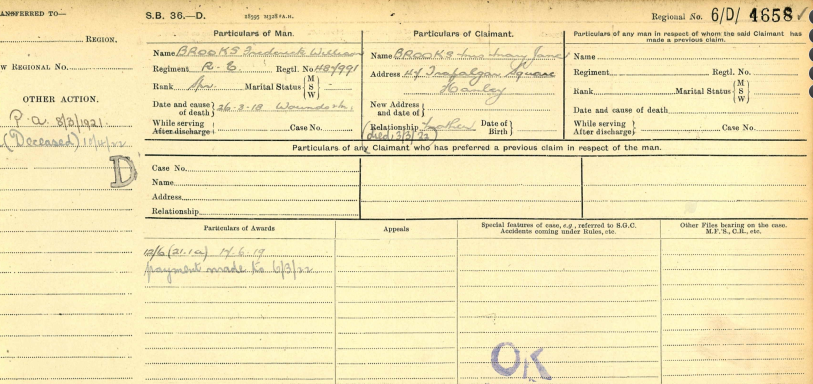 ANSFERRED TO—
REGION.
W REGIONAL No.
OTHER ACTION.
P.a. 8/3/1921
(Deceased)
D
S.B. 36.—D.
Regional No. 6/D/ 4658 ✓
Particulars of Man.
Name BROOKS Frederick William
Regiment R.E. Regtl. No. 487991
Rank Spr. Marital Status { M S W }
Date and cause of death } 26-3-18 Wounds
While serving
After discharge } Case No.
Particulars of Claimant.
Name BROOKS Mrs Mary Jane
Address 47 Trafalgar Square
Hanley
New Address and date of }
Relationship Mother Date of Birth }
(died 3/3/22)
Particulars of any man in respect of whom the said Claimant has
made a previous claim.
Name
Regiment Regtl. No.
Rank Marital Status { M S W }
Date and cause of death
While serving
After discharge } Case No.
Particulars of any Claimant who has preferred a previous claim in respect of the man.
Case No.
Name
Address
Relationship
Particulars of Awards
12/6 (21.1a) 14.6.19
payment made to 6/3/22
Appeals
Special features of case, e.g., referred to S.G.C.
Accidents coming under Rules, etc.
OK
Other Files bearing on the case.
M.F.'S., C.R., etc.